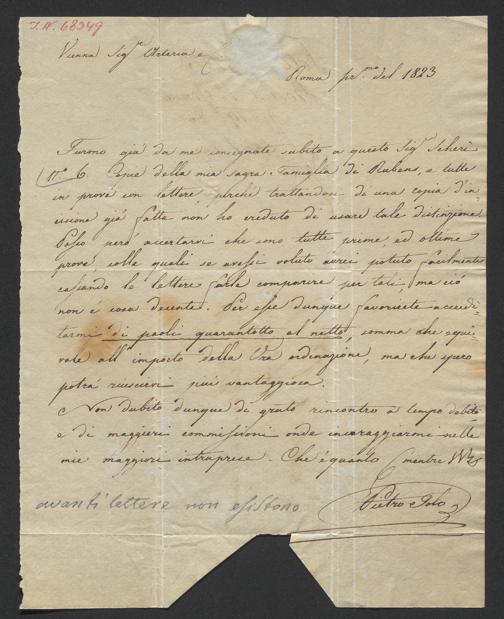 I.N. 68349
Vienna Sigr Arteria e
Roma pr.mo del 1823
Furono già da me consegnate subito a questo Sigr Scheri
N.o 6. Copie della mia Sagra Famiglia di Rubens, e tutte
in prove con lettere, perchè trattandosi di una copia d'in-
cisione già fatte non ho creduto di usare tale distinzione
Posso però accertarvi che sono tutte prime, ed ottime
prove colle quali se avessi voluto avrei potuto facilmente
cassando le lettere farle comparire per tali, ma ciò
non è cosa decente. Per esse dunque favorirete accredi-
tarmi di paoli quarantotto al netto, somma che equi-
vale all'importo della Vra ordinazione, ma che spero
potrà riuscirvi più vantaggiosa.
Non dubito dunque di grato rincontro a tempo debito
e di maggiori commissioni onde incoraggiarmi nelle
mie maggiori intraprese. Che è quanto mentre
avanti lettere non esistono
Pietro